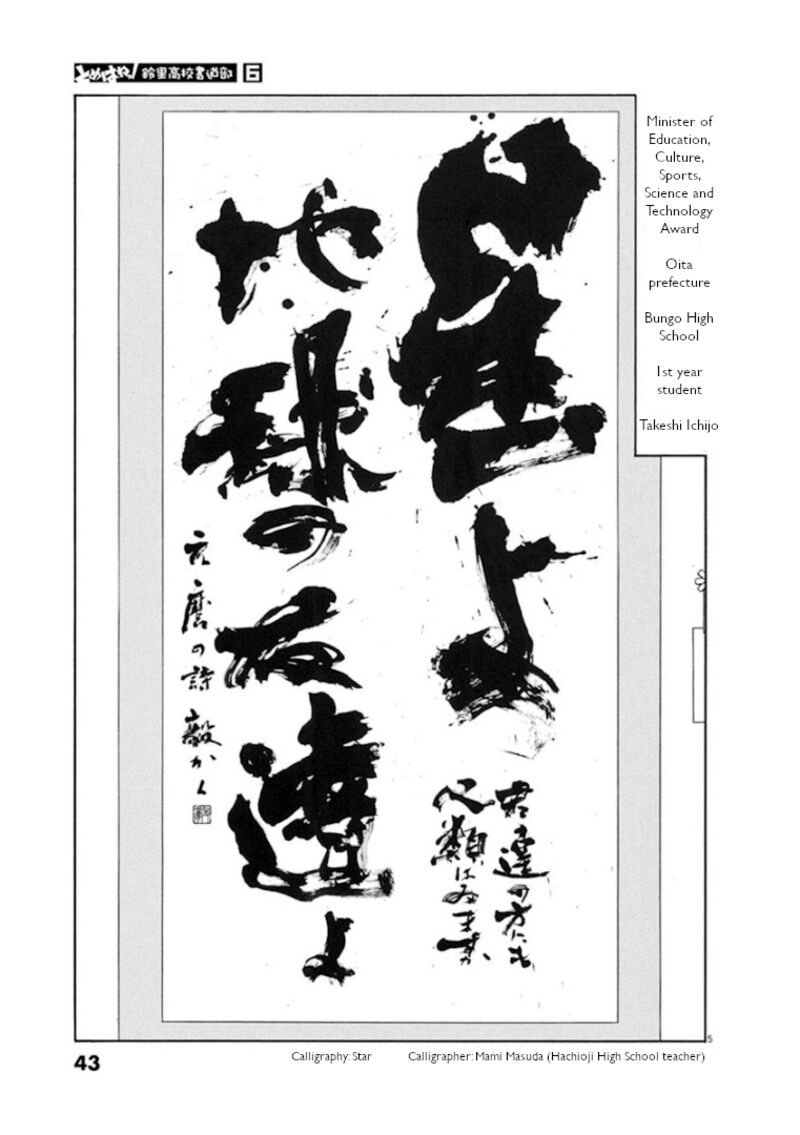 とめはねっ! 鈴里高校書道部 6
Minister of
Education,
Culture,
Sports,
Science and
Technology
Award
Oita
prefecture
Bungo High
School
1st year
student
Takeshi Ichijo
星よ
君達の方にも
人類はゐますか
地球の友達よ
元麿の詩 毅かく
43
Calligraphy: Star
Calligrapher: Mami Masuda (Hachioji High School teacher)
5